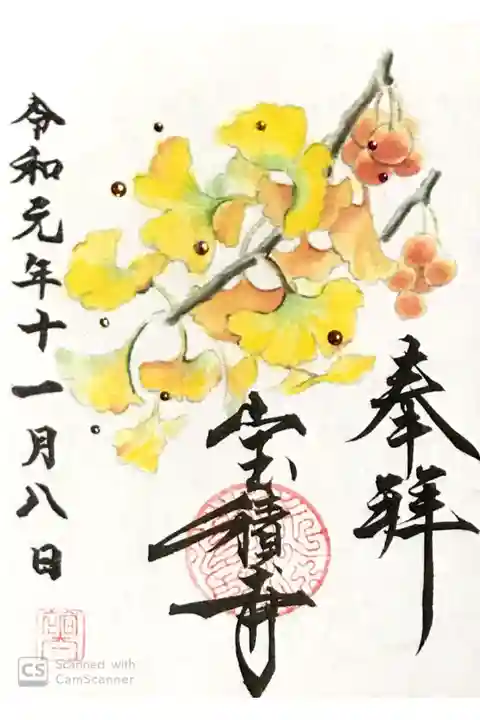 奉拜
宝積寺
令和元年十一月八日
CS Scanned with
CamScanner